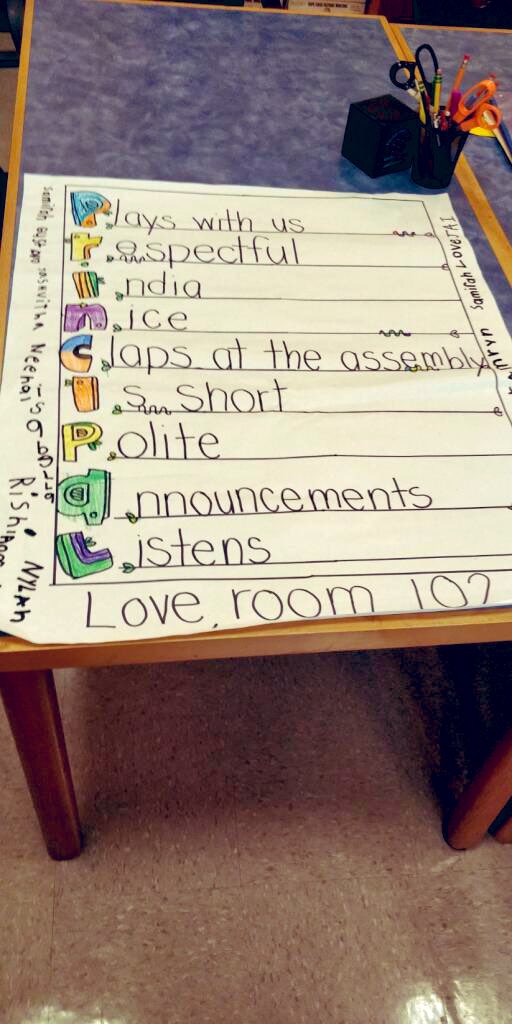 Plays with us
respectful
India
nice
Claps at the assembly
is short
Polite
announcements
Listens
Love, room 107
Samirah
Neehal
Rishi
Nylah
Samirah Love JAI